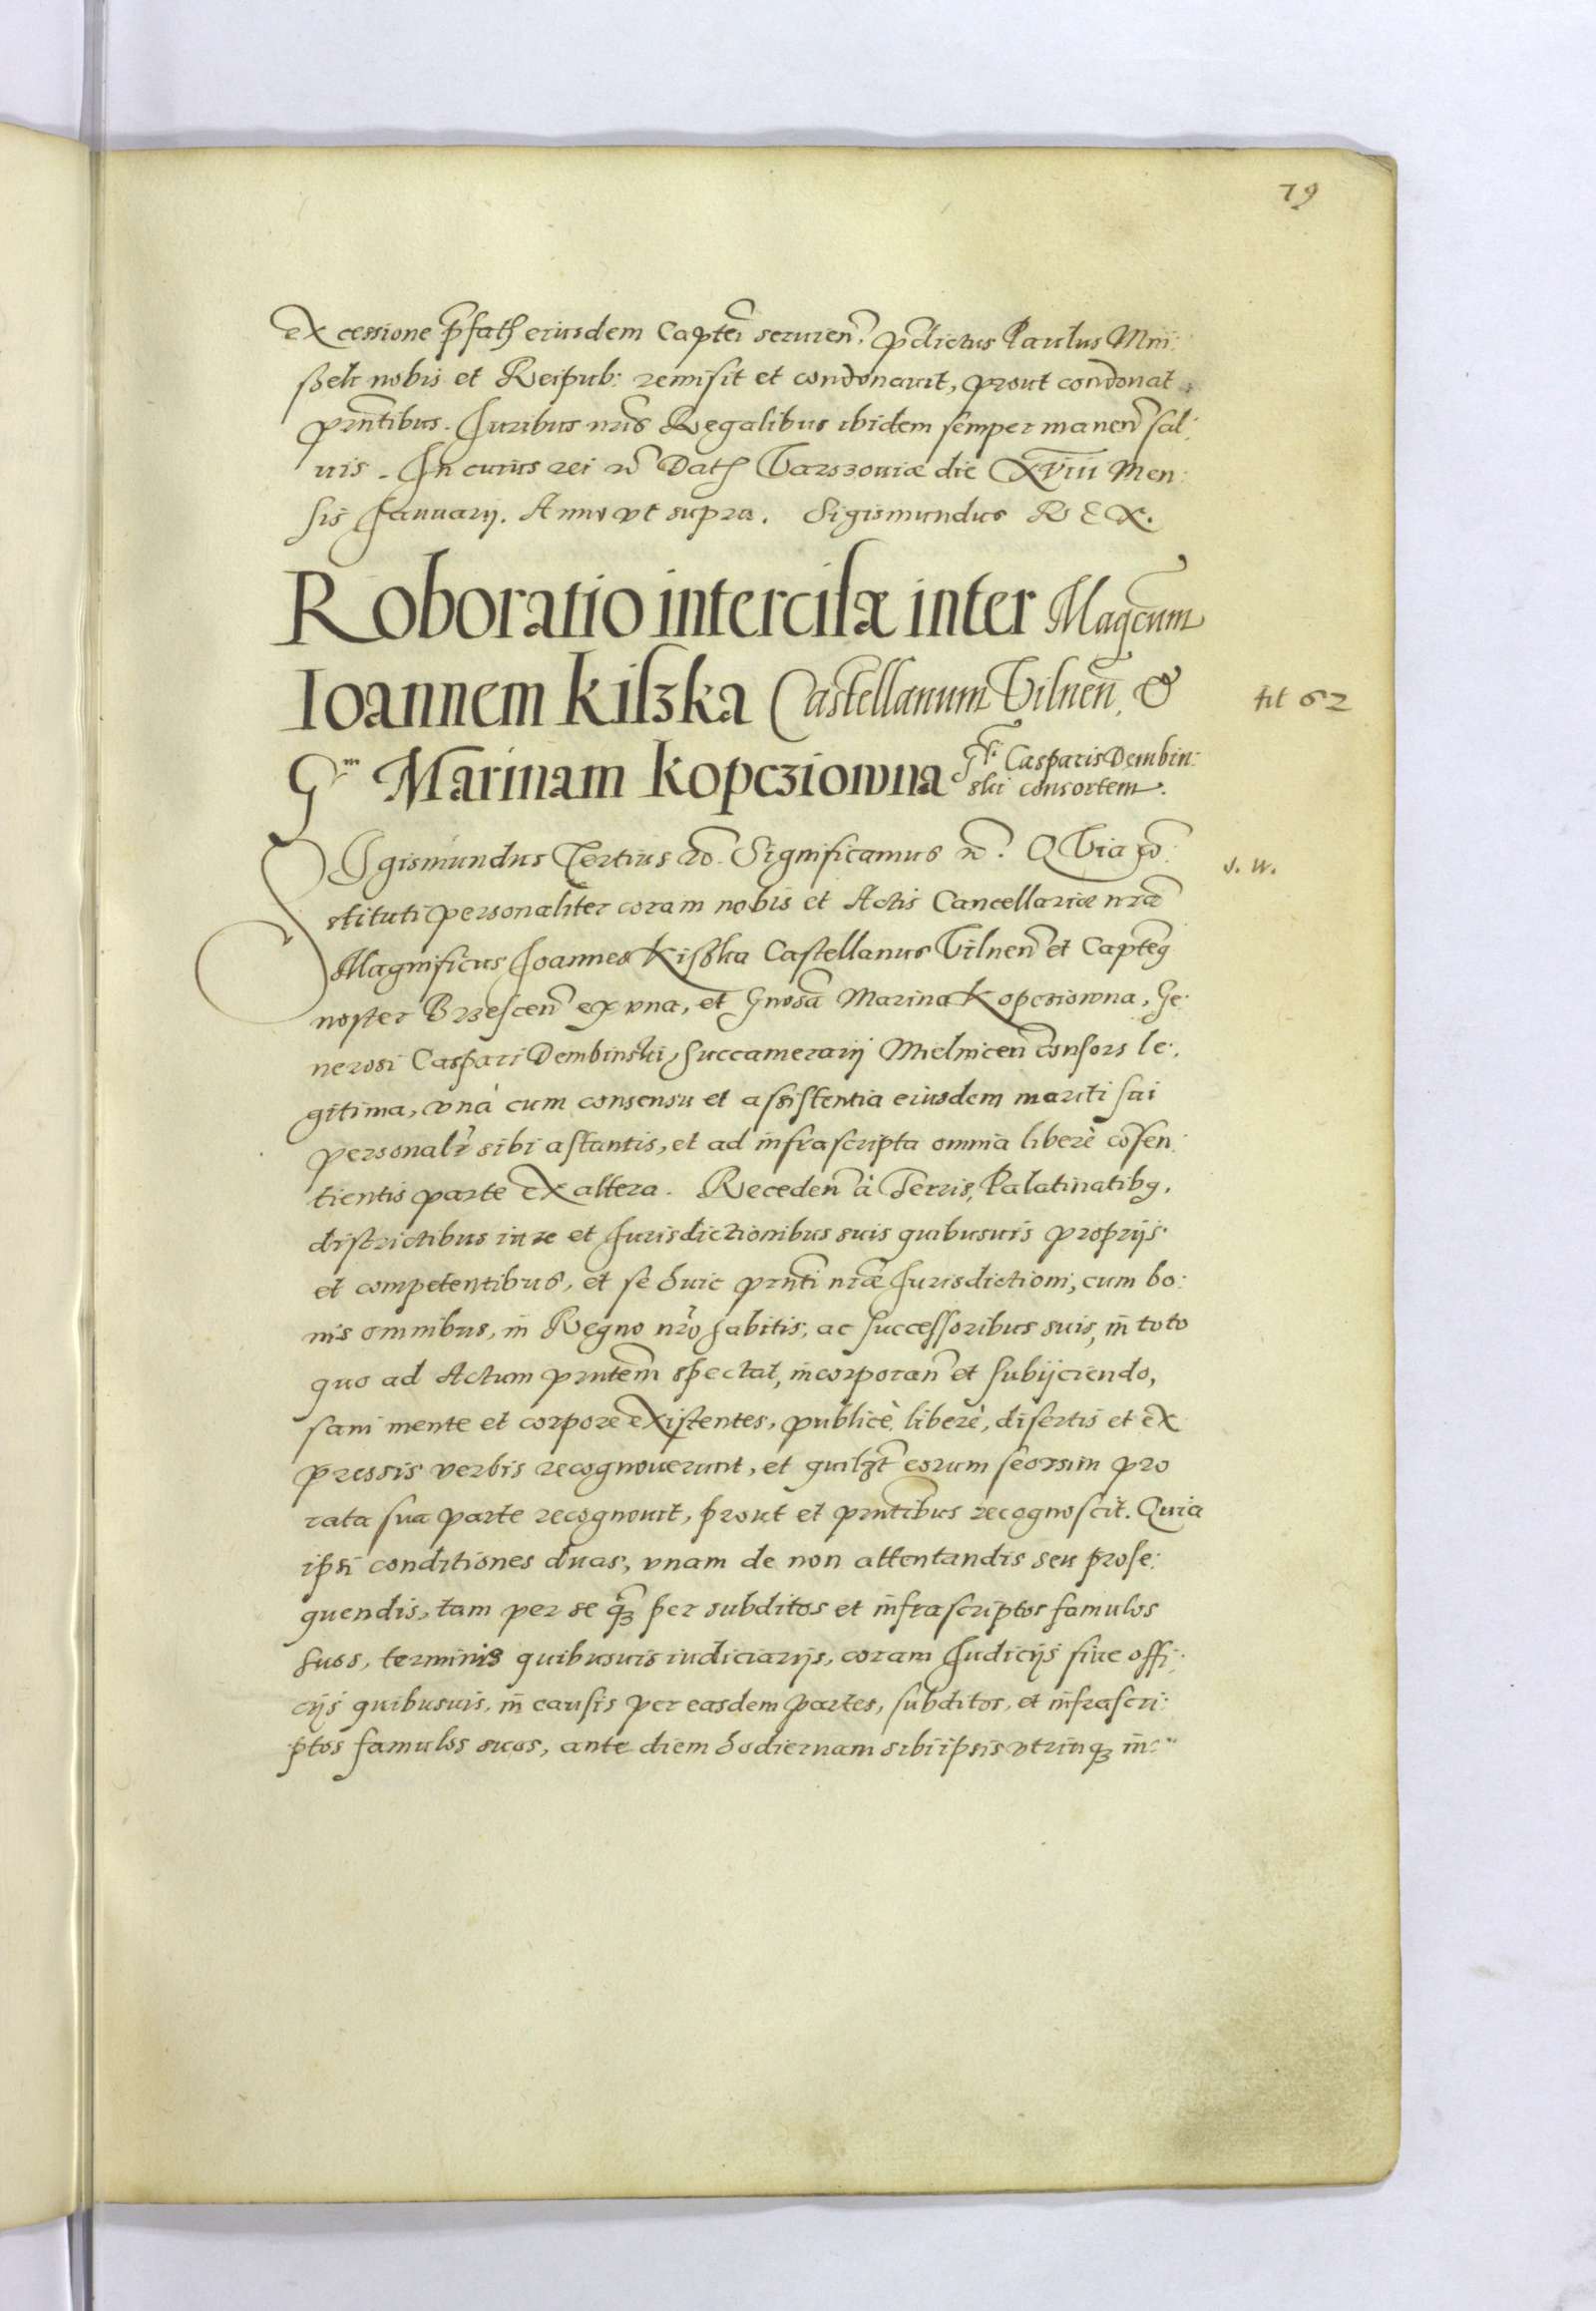 79
ex cessione p̃fatꝭ eiusdem Captei seruien̄. p̃dictus Paulus Mni:
ßek nobis et Reipub: remisit et condonauit, prout condonat
pñtibus. Juribus nr̃is Regalibus ibidem semper manen̄ sal:
uis. In cuius rei &c̄ Datꝭ Varsouiæ die XVIII Men:
sis Januarij. Anno vt supra. Sigismundus REX.
Roboratio intercisæ inter Magcum
Ioannem Kiszka Castellanum Vilnen̄. &
tit 62
Gm̄ Marinam Kopcziowna Gsi. Casparis Dembin:
ski consortem.
SIgismundus Tertius &c̄. Significamus &c̄. QVia cō:
J. W.
stituti personaliter coram nobis et Actis Cancellariæ nr̃æ
Magnificus Joannes Kißka Castellanus Vilnen̄ et Capteꝯ
noster Brzescen̄ ex vna, et Gnosa Marina Kopcziowna, Ge:
nerosi Caspari Dembinski, Succamerarij Mielnicen̄ consors le:
gitima, vnà cum consensu et assistentia eiusdem mariti sui
personalr̃ sibi astantis, et ad infrascripta omnia liberè cōsen:
tientis parte ex altera. Receden̄ à Terris, Palatinatibꝯ,
districtibus iure et Jurisdictionibus suis quibusuis proprijs
et competentibus, et se huic pñti nr̃æ Jurisdictioni, cum bo:
nis omnibus, in Regno nr̃o habitis, ac successoribus suis, in toto
quo ad Actum pñtem spectat, incorporan̄ et subijciendo,
sani mente et corpore existentes, publicè, liberè, disertis et ex
pressis verbis recognouerunt, et quilꝫt eorum seorsim pro
rata sua parte recognouit, prout et pñtibus recognoscit. Quia
ipsi conditiones duas, vnam de non attentandis seu prose:
quendis, tam per se qꝫ̄ per subditos et infrascriptos famulos
suos, terminis quibusuis iudiciarijs, coram Judicijs siue offi:
cijs quibusuis, in causis per easdem partes, subditos, et infrascri:
ptos famulos suos, ante diem hodiernam sibi ipsis vtrinqꝫ in: